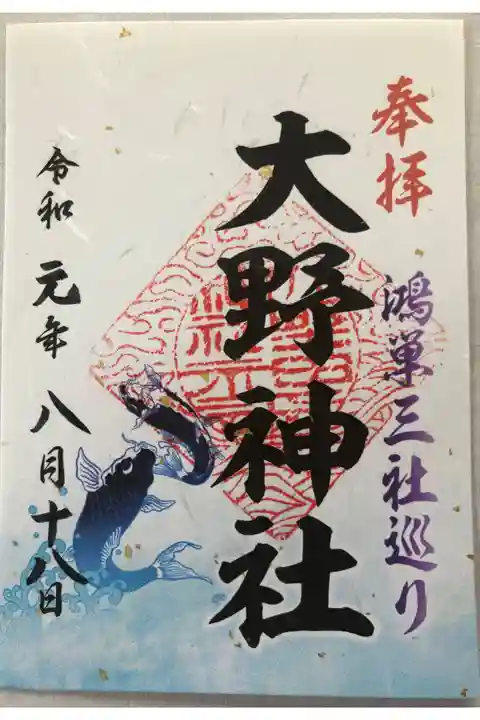 奉拝
鴻巣三社巡り
大野神社
令和元年八月十八日